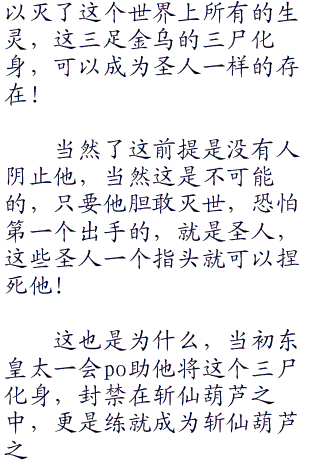 以灭了这个世界上所有的生
灵，这三足金乌的三尸化
身，可以成为圣人一样的存
在！
当然了这前提是没有人
阴止他，当然这是不可能
的，只要他胆敢灭世，恐怕
第一个出手的，就是圣人，
这些圣人一个指头就可以捏
死他！
这也是为什么，当初东
皇太一会po助他将这个三尸
化身，封禁在斩仙葫芦之
中，更是练就成为斩仙葫芦
之